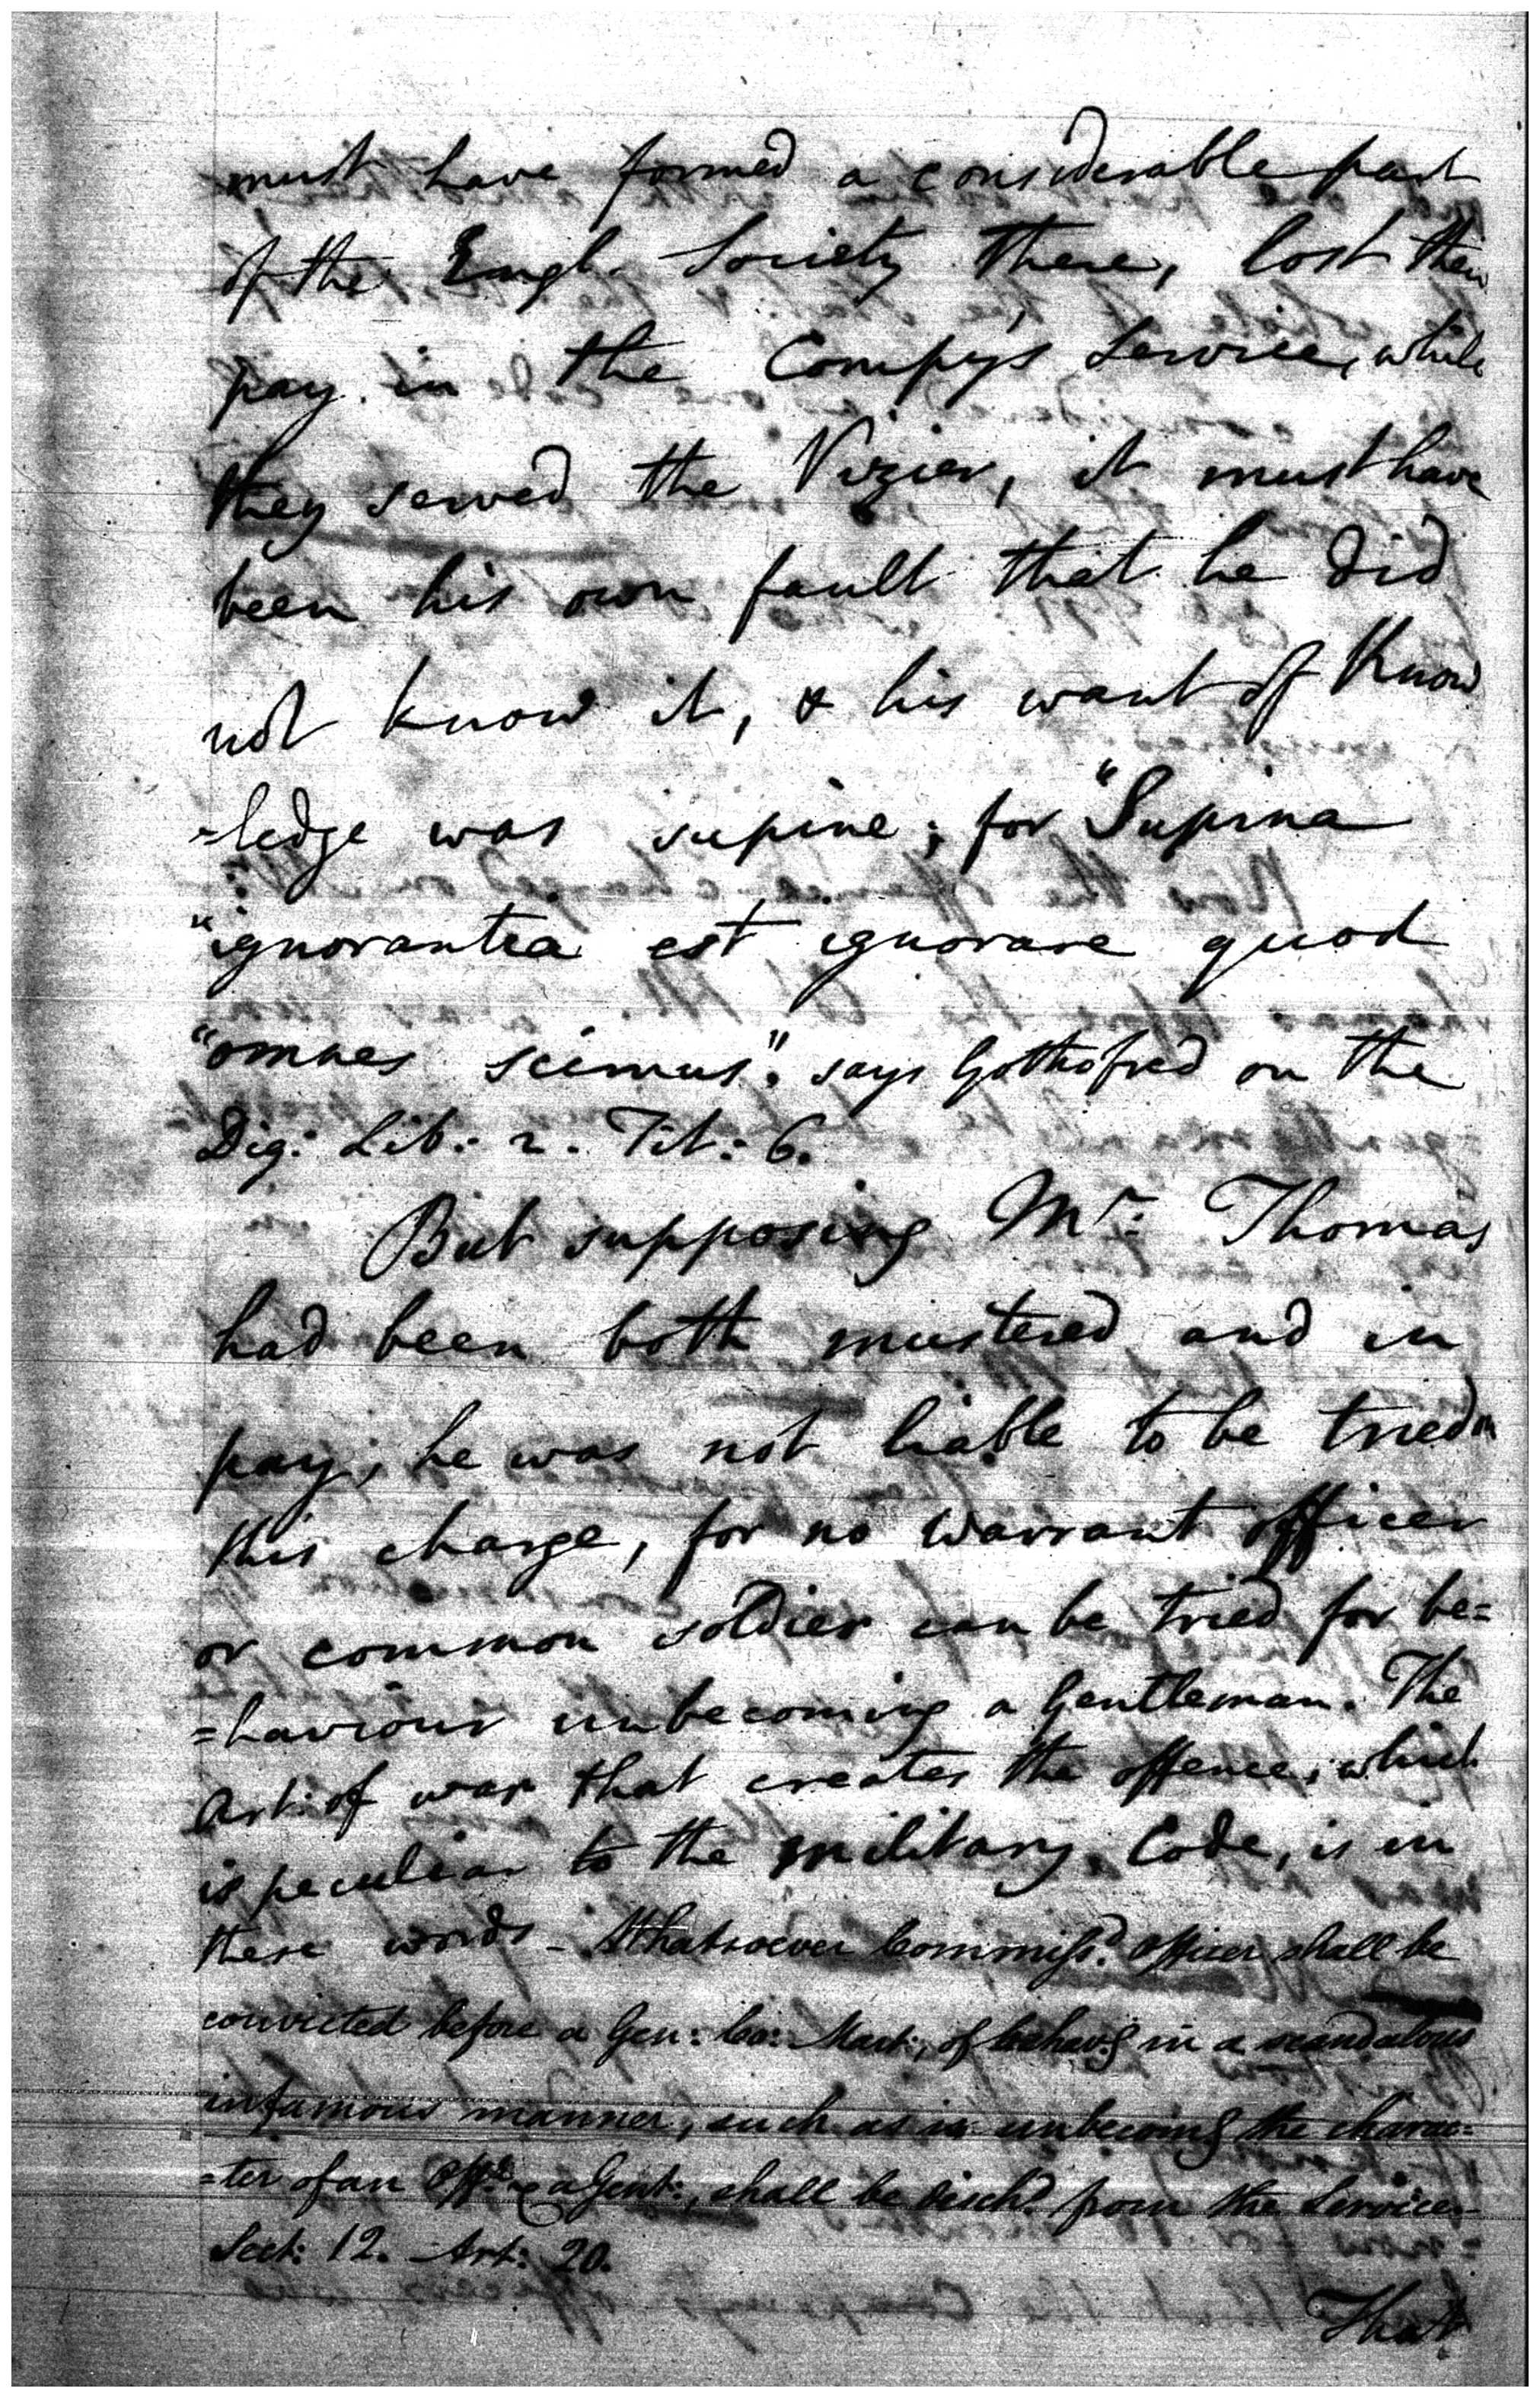 must have formed a considerable part
of the Engl. Society there, lost their
pay in the Compy's Service, while
they served the Vizier, it must have
been his own fault that he did
not know it, & his want of Know
=ledge was supine; for "Supina
"ignorantia est ignorare quod
"omnes scimus". says Gothofred on the
Dig: Lib: 2. Tit: 6.
But supposing Mr: Thomas
had been both mustered and in
pay, he was not liable to be tried on
this charge, for no warrant officer
or common soldier can be tried for be=
=haviour unbecoming a Gentleman. The
Art: of war that creates the offence, which
is peculiar to the military Code, is in
these words - Whatsoever Commissd. officer shall be
convicted before a Gen: Co: Mart:, of behavg in a scandalous
infamous manner, such as is unbecomg the charac=
=ter of an Offr. & a Gent:, shall be disch'd from the Service -
Sect: 12. Art: 20.
That